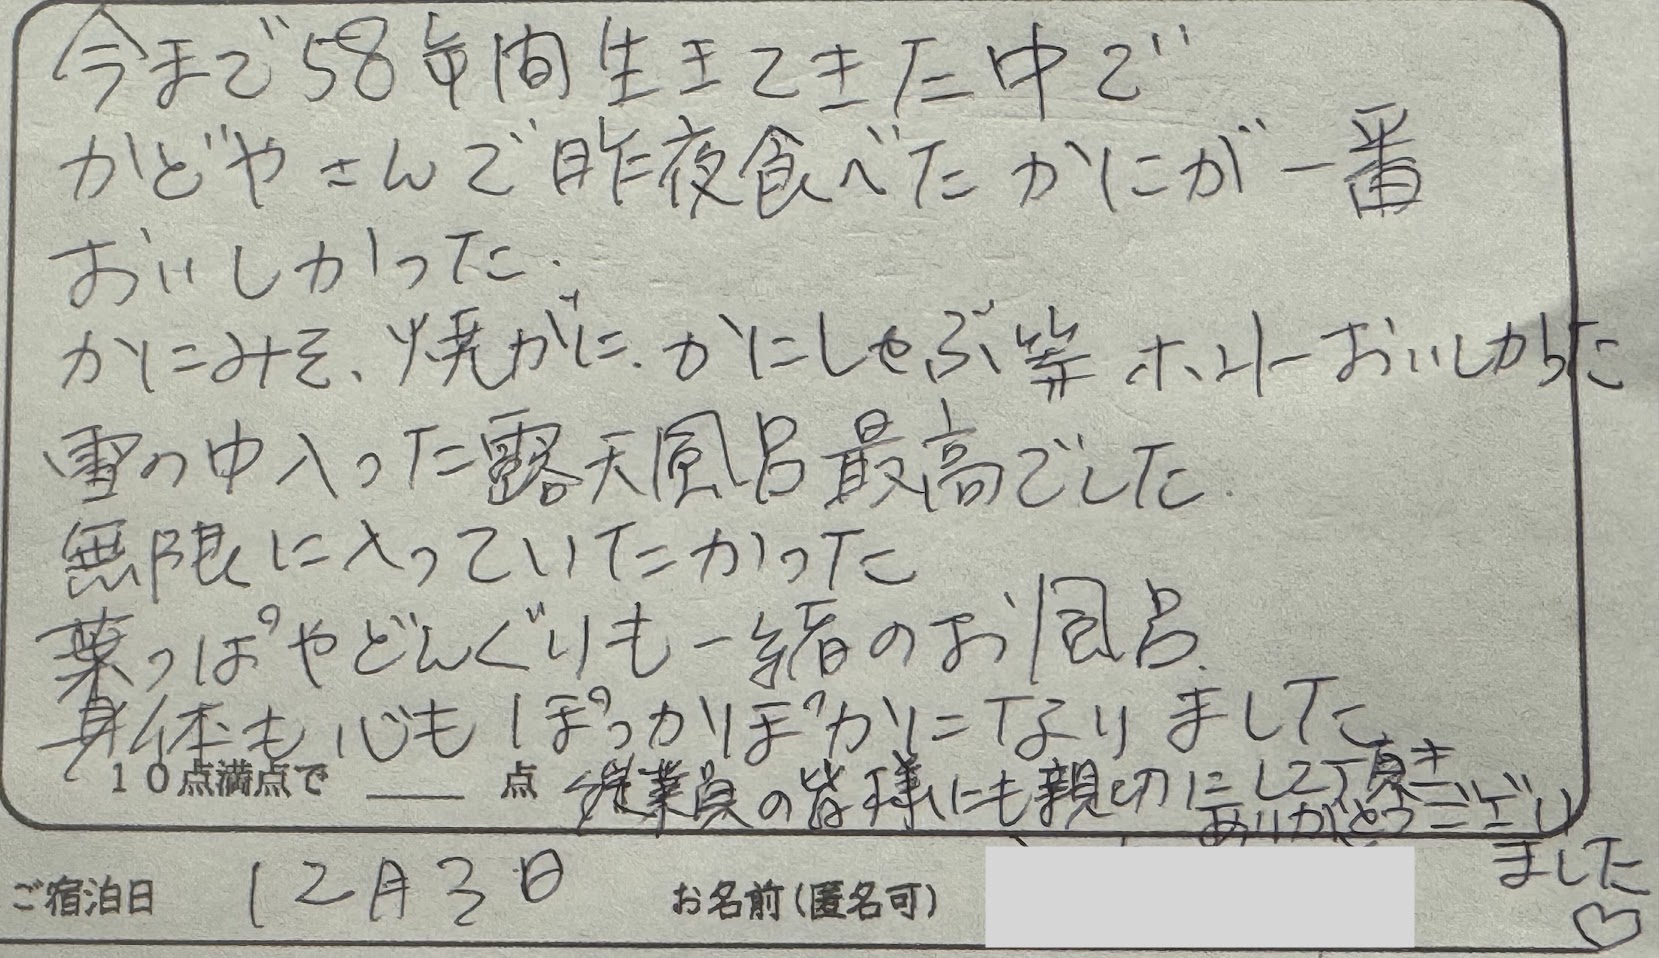 今まで58年間生きてきた中で
かどやさんで昨夜食べたかにが一番
おいしかった.
かにみそ、焼がに、かにしゃぶ等 ホントーおいしかった
雪の中入った露天風呂最高でした.
無限に入っていたかった
葉っぱやどんぐりも一緒のお風呂.
身体も心もぽっかぽかになりました
10点満点で ___ 点 従業員の皆様にも親切にして頂き
ありがとうござい
ました
♡
ご宿泊日 12月3日 お名前(匿名可)